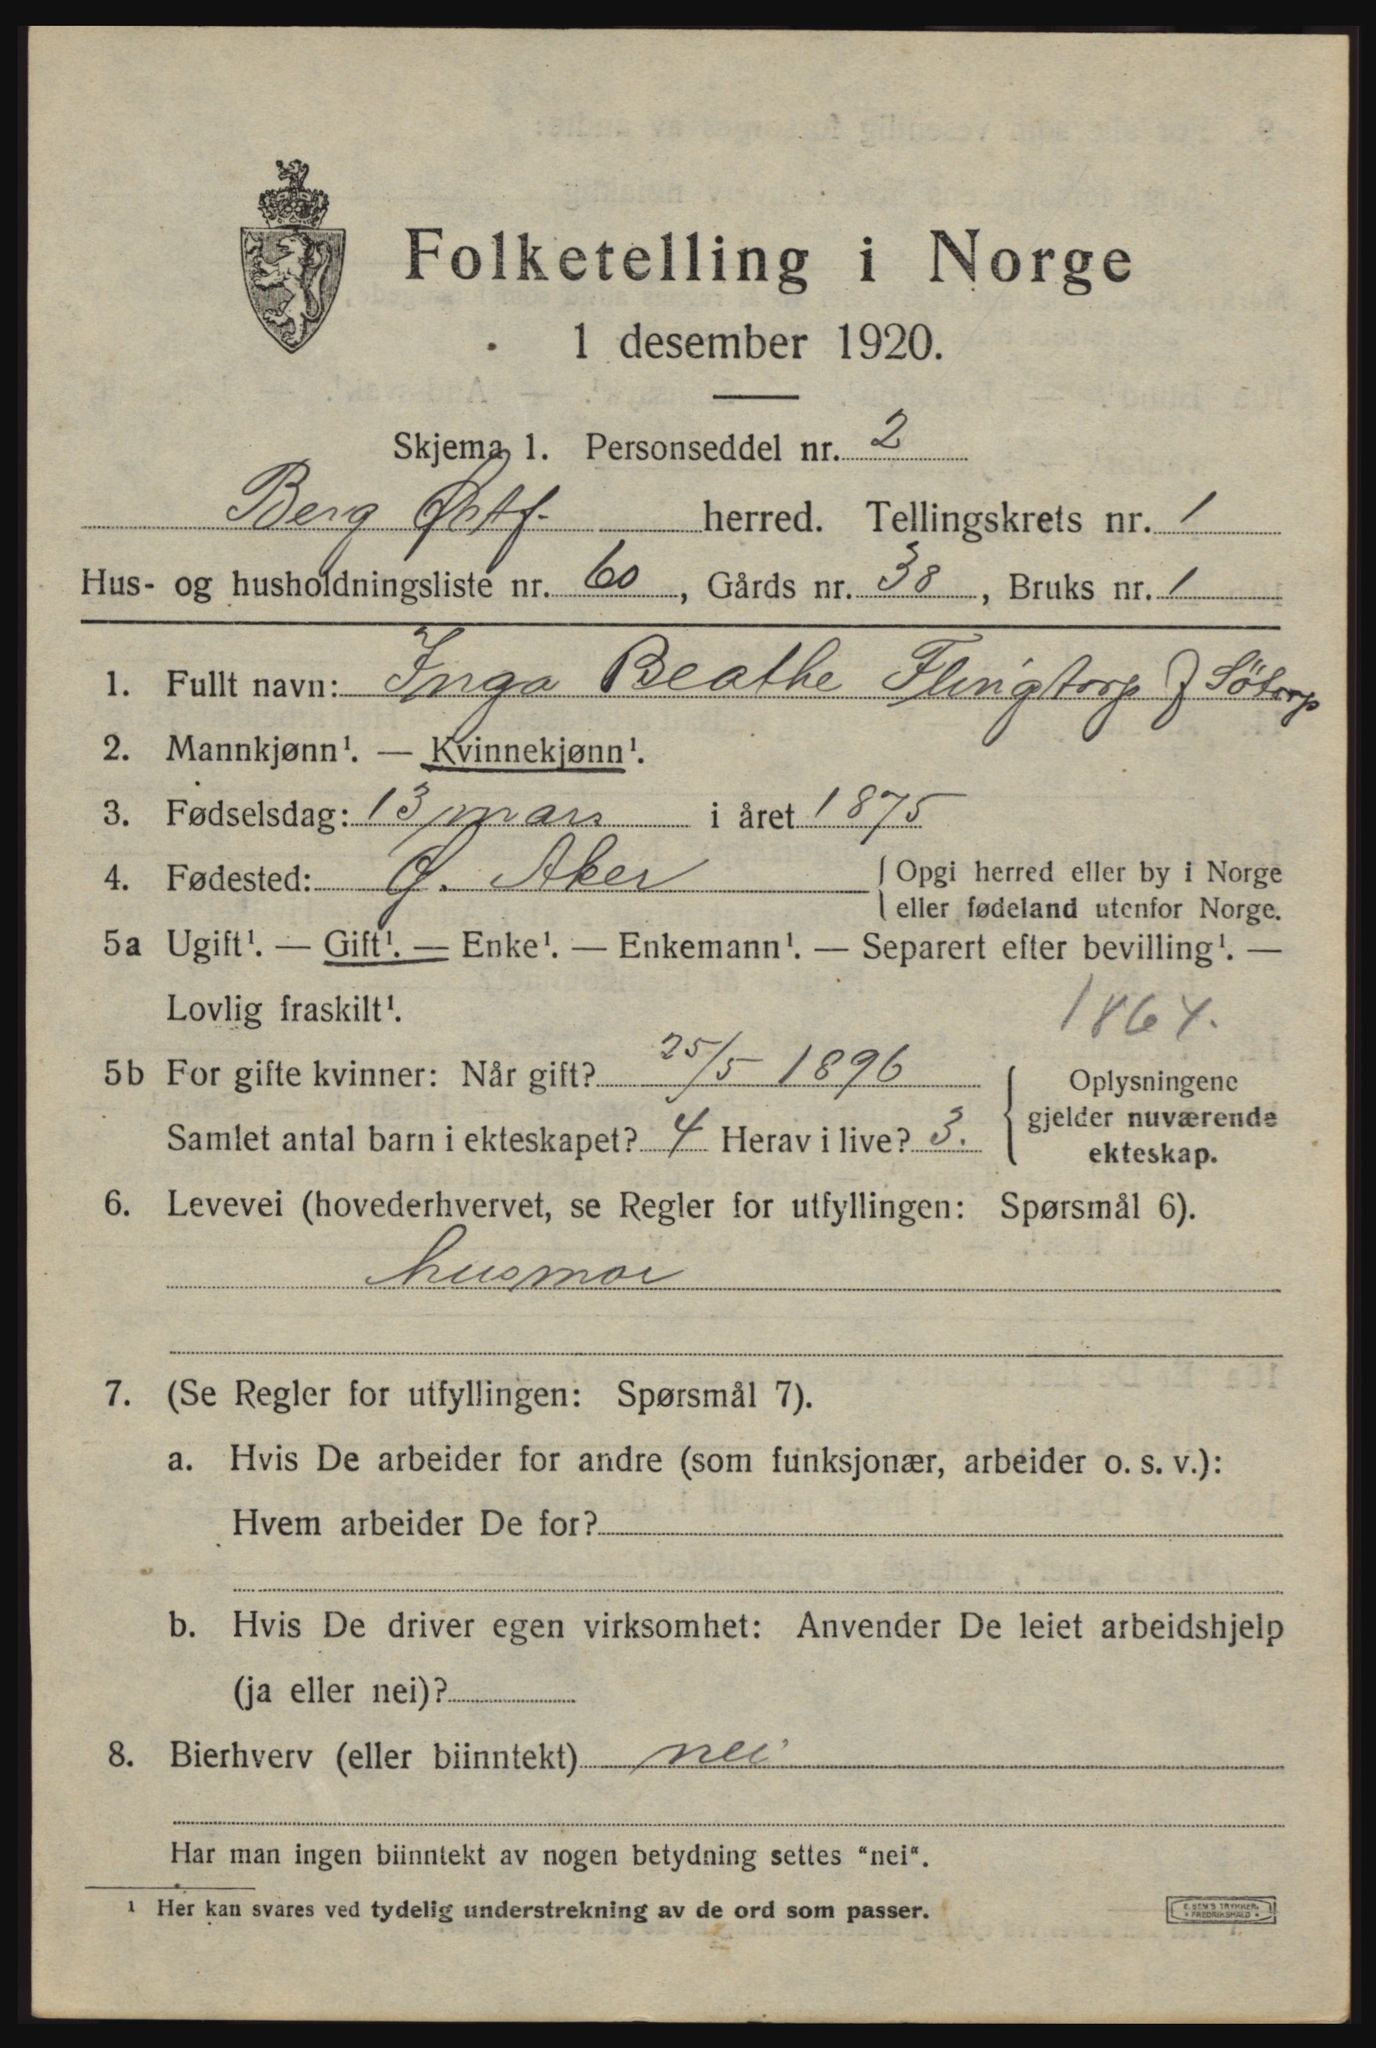 Folketelling i Norge
1 desember 1920.
Skjema 1. Personseddel nr. 2
Berg Østf. herred. Tellingskrets nr. 1
Hus- og husholdningsliste nr. 60, Gårds nr. 38, Bruks nr. 1
1. Fullt navn: Inga Beathe Flingtorp f Söterp
2. Mannkjønn¹. — Kvinnekjønn¹.
3. Fødselsdag: 13 mars i året 1875
4. Fødested: Ø. Aker Opgi herred eller by i Norge
eller fødeland utenfor Norge.
5a Ugift¹. — Gift¹. — Enke¹. — Enkemann¹. — Separert efter bevilling¹. —
Lovlig fraskilt¹. 1864.
5b For gifte kvinner: Når gift? 25/5 1896 Oplysningene
gjelder nuværende
Samlet antal barn i ekteskapet? 4 Herav i live? 3. ekteskap.
6. Levevei (hovederhvervet, se Regler for utfyllingen: Spørsmål 6).
husmor
7. (Se Regler for utfyllingen: Spørsmål 7).
a. Hvis De arbeider for andre (som funksjonær, arbeider o. s. v.):
Hvem arbeider De for?
b. Hvis De driver egen virksomhet: Anvender De leiet arbeidshjelp
(ja eller nei)?
8. Bierhverv (eller biinntekt) nei
Har man ingen biinntekt av nogen betydning settes "nei".
¹ Her kan svares ved tydelig understrekning av de ord som passer.
E. SEM'S TRYKKERI
FREDRIKSHALD